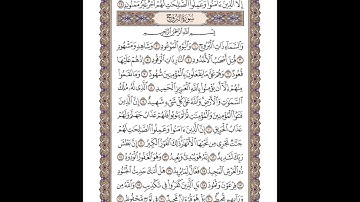 إِلَّا ٱلَّذِينَ ءَامَنُوا۟ وَعَمِلُوا۟ ٱلصَّٰلِحَٰتِ لَهُمْ أَجْرٌ غَيْرُ مَمْنُونٍۭ
سُورَةُ البُرُوجِ
بِسْمِ ٱللَّهِ ٱلرَّحْمَٰنِ ٱلرَّحِيمِ
وَٱلسَّمَآءِ ذَاتِ ٱلْبُرُوجِ ١ وَٱلْيَوْمِ ٱلْمَوْعُودِ ٢ وَشَاهِدٍ وَمَشْهُودٍ
٣ قُتِلَ أَصْحَٰبُ ٱلْأُخْدُودِ ٤ ٱلنَّارِ ذَاتِ ٱلْوَقُودِ ٥ إِذْ هُمْ عَلَيْهَا
قُعُودٌ ٦ وَهُمْ عَلَىٰ مَا يَفْعَلُونَ بِٱلْمُؤْمِنِينَ شُهُودٌ ٧ وَمَا نَقَمُوا۟
مِنْهُمْ إِلَّآ أَن يُؤْمِنُوا۟ بِٱللَّهِ ٱلْعَزِيزِ ٱلْحَمِيدِ ٨ ٱلَّذِى لَهُۥ مُلْكُ
ٱلسَّمَٰوَٰتِ وَٱلْأَرْضِ وَٱللَّهُ عَلَىٰ كُلِّ شَىْءٍ شَهِيدٌ ٩ إِنَّ ٱلَّذِينَ
فَتَنُوا۟ ٱلْمُؤْمِنِينَ وَٱلْمُؤْمِنَٰتِ ثُمَّ لَمْ يَتُوبُوا۟ فَلَهُمْ عَذَابُ جَهَنَّمَ وَلَهُمْ
عَذَابُ ٱلْحَرِيقِ ١٠ إِنَّ ٱلَّذِينَ ءَامَنُوا۟ وَعَمِلُوا۟ ٱلصَّٰلِحَٰتِ لَهُمْ
جَنَّٰتٌ تَجْرِى مِن تَحْتِهَا ٱلْأَنْهَٰرُ ذَٰلِكَ ٱلْفَوْزُ ٱلْكَبِيرُ ١١ إِنَّ بَطْشَ
رَبِّكَ لَشَدِيدٌ ١٢ إِنَّهُۥ هُوَ يُبْدِئُ وَيُعِيدُ ١٣ وَهُوَ ٱلْغَفُورُ ٱلْوَدُودُ ١٤
ذُو ٱلْعَرْشِ ٱلْمَجِيدُ ١٥ فَعَّالٌ لِّمَا يُرِيدُ ١٦ هَلْ أَتَىٰكَ حَدِيثُ ٱلْجُنُودِ
١٧ فِرْعَوْنَ وَثَمُودَ ١٨ بَلِ ٱلَّذِينَ كَفَرُوا۟ فِى تَكْذِيبٍ ١٩ وَٱللَّهُ مِن
وَرَآئِهِم مُّحِيطٌۢ ٢٠ بَلْ هُوَ قُرْءَانٌ مَّجِيدٌ ٢١ فِى لَوْحٍ مَّحْفُوظٍۭ ٢٢